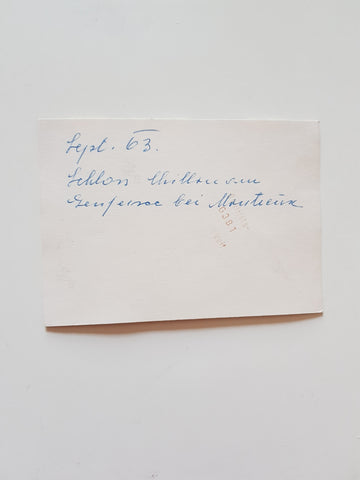 Sept. 63.
Schloss Chillon am
Genfersee bei Montreux